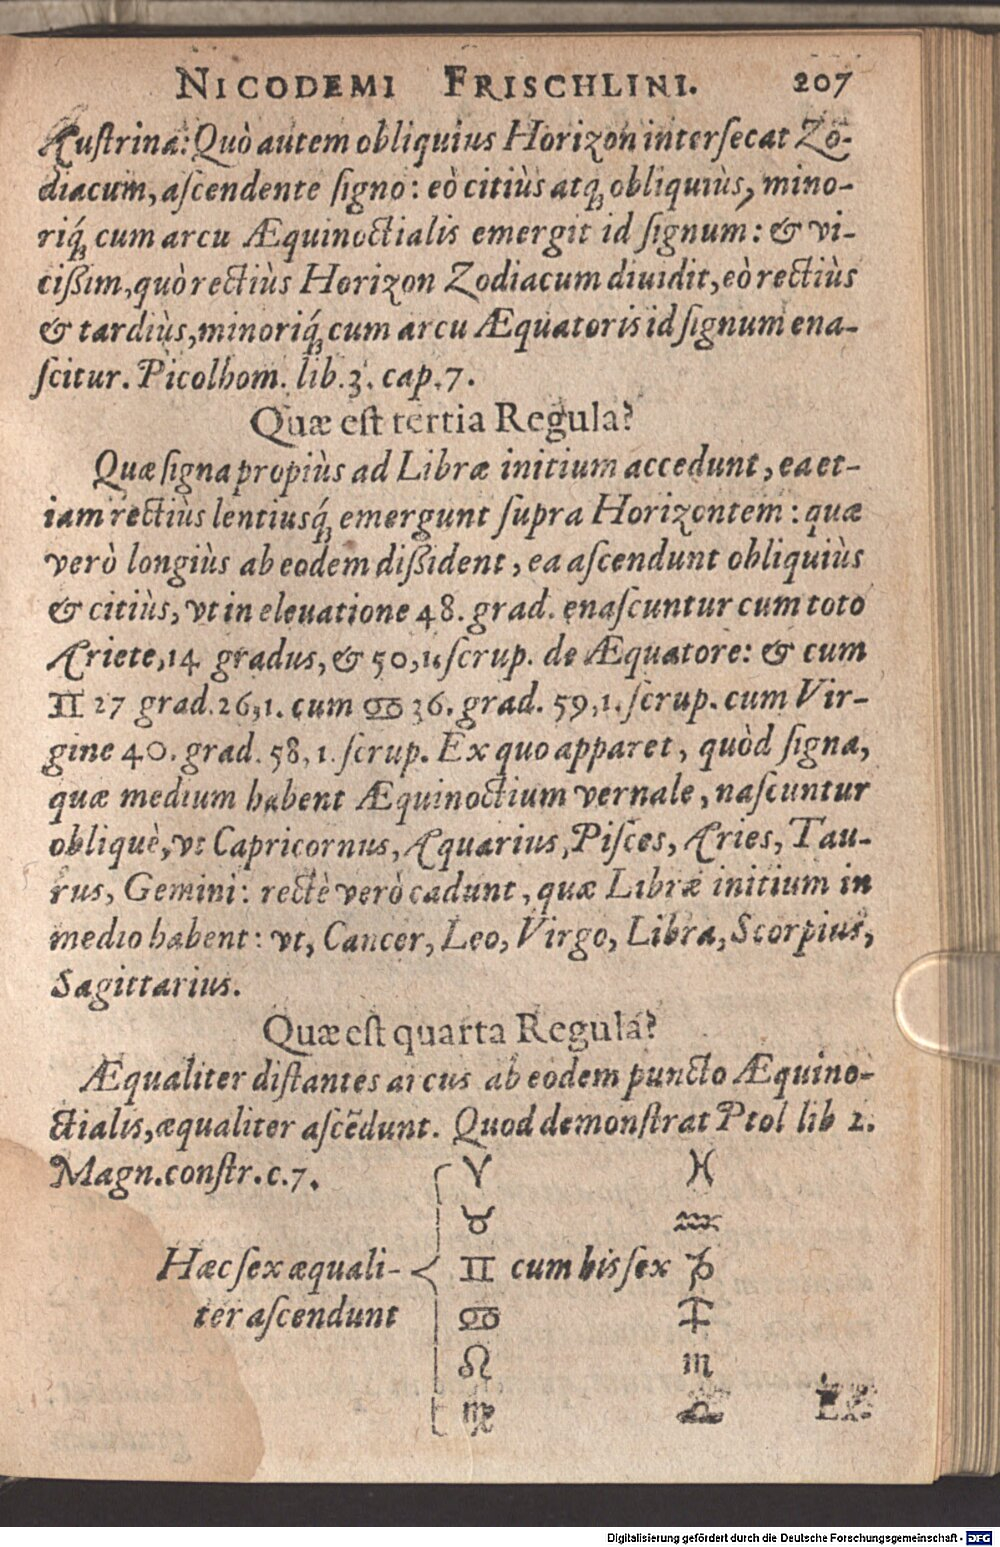 NICODEMI FRISCHLINI. 207
Auſtrina: Quò autem obliquius Horizon interſecat Zo-
diacum, aſcendente ſigno: eò citiùs atq́; obliquiùs, mino-
riq́; cum arcu Æquinoctialis emergit id ſignum: & vi-
ciſsim, quò rectiùs Horizon Zodiacum diuidit, eò rectiùs
& tardiùs, minoriq́; cum arcu Æquatoris id ſignum ena-
ſcitur. Picolhom. lib.3. cap.7.
Quæ eſt tertia Regula?
Quæ ſigna propiùs ad Libræ initium accedunt, ea et-
iam rectiùs lentiusq́; emergunt ſupra Horizontem: quæ
verò longiùs ab eodem diſsident, ea aſcendunt obliquiùs
& citiùs, vt in eleuatione 48. grad. enaſcuntur cum toto
Ariete, 14 gradus, & 50,1. ſcrup. de Æquatore: & cum
♊ 27 grad. 26,1. cum ♋ 36. grad. 59,1. ſcrup. cum Vir-
gine 40. grad. 58,1. ſcrup. Ex quo apparet, quòd ſigna,
quæ medium habent Æquinoctium vernale, naſcuntur
obliquè, vt Capricornus, Aquarius, Piſces, Aries, Tau-
rus, Gemini: rectè verò cadunt, quæ Libræ initium in
medio habent: vt, Cancer, Leo, Virgo, Libra, Scorpius,
Sagittarius.
Quæ eſt quarta Regula?
Æqualiter diſtantes arcus ab eodem puncto Æquino-
ctialis, æqualiter aſcẽdunt. Quod demonſtrat Ptol lib 2.
Magn. conſtr. c.7. ♈ ♓
♉ ♒
Hæc ſex æquali- ♊ cum his ſex ♑
ter aſcendunt ♋ ♐
♌ ♏
♍ ♎
Digitalisierung gefördert durch die Deutsche Forschungsgemeinschaft - DFG